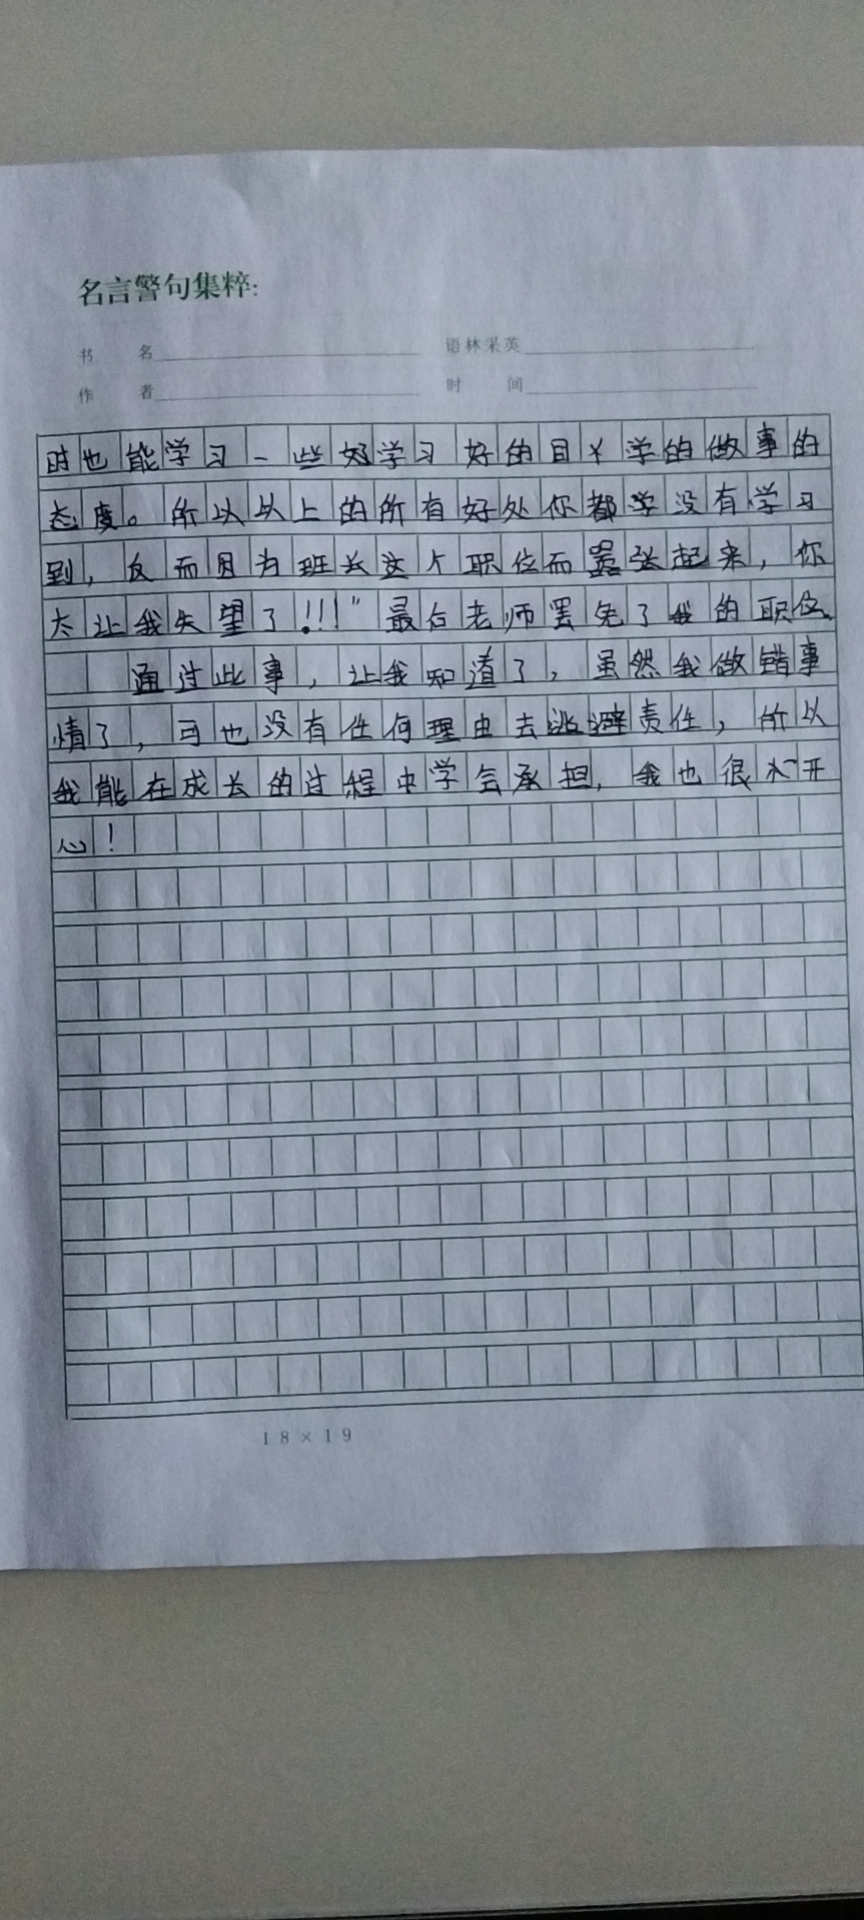 名言警句集粹:
书 名 语林采英
作 者 时 间
时也能学习一些好学习好的同学的做事的
态度。所以以上的所有好处你都学没有学习
到，反而因为班长这个职位而嚣张起来，你
太让我失望了!!!”最后老师罢免了我的职位。
通过此事，让我知道了，虽然我做错事
情了，可也没有任何理由去逃避责任，所以
我能在成长的过程中学会承担，我也很开
心！
18×19